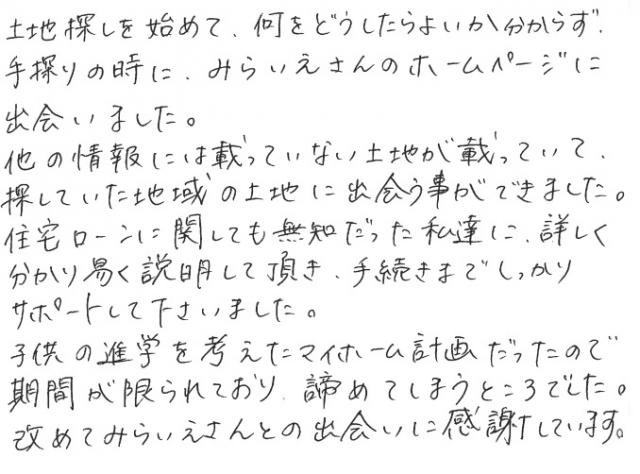 土地探しを始めて、何をどうしたらよいか分からず、
手探りの時に、みらいえさんのホームページに
出会いました。
他の情報には載っていない土地が載っていて、
探していた地域の土地に出会う事ができました。
住宅ローンに関しても無知だった私達に、詳しく
分かり易く説明して頂き、手続きまでしっかり
サポートして下さいました。
子供の進学を考えたマイホーム計画だったので
期間が限られており、諦めてしまうところでした。
改めてみらいえさんとの出会いに感謝しています。